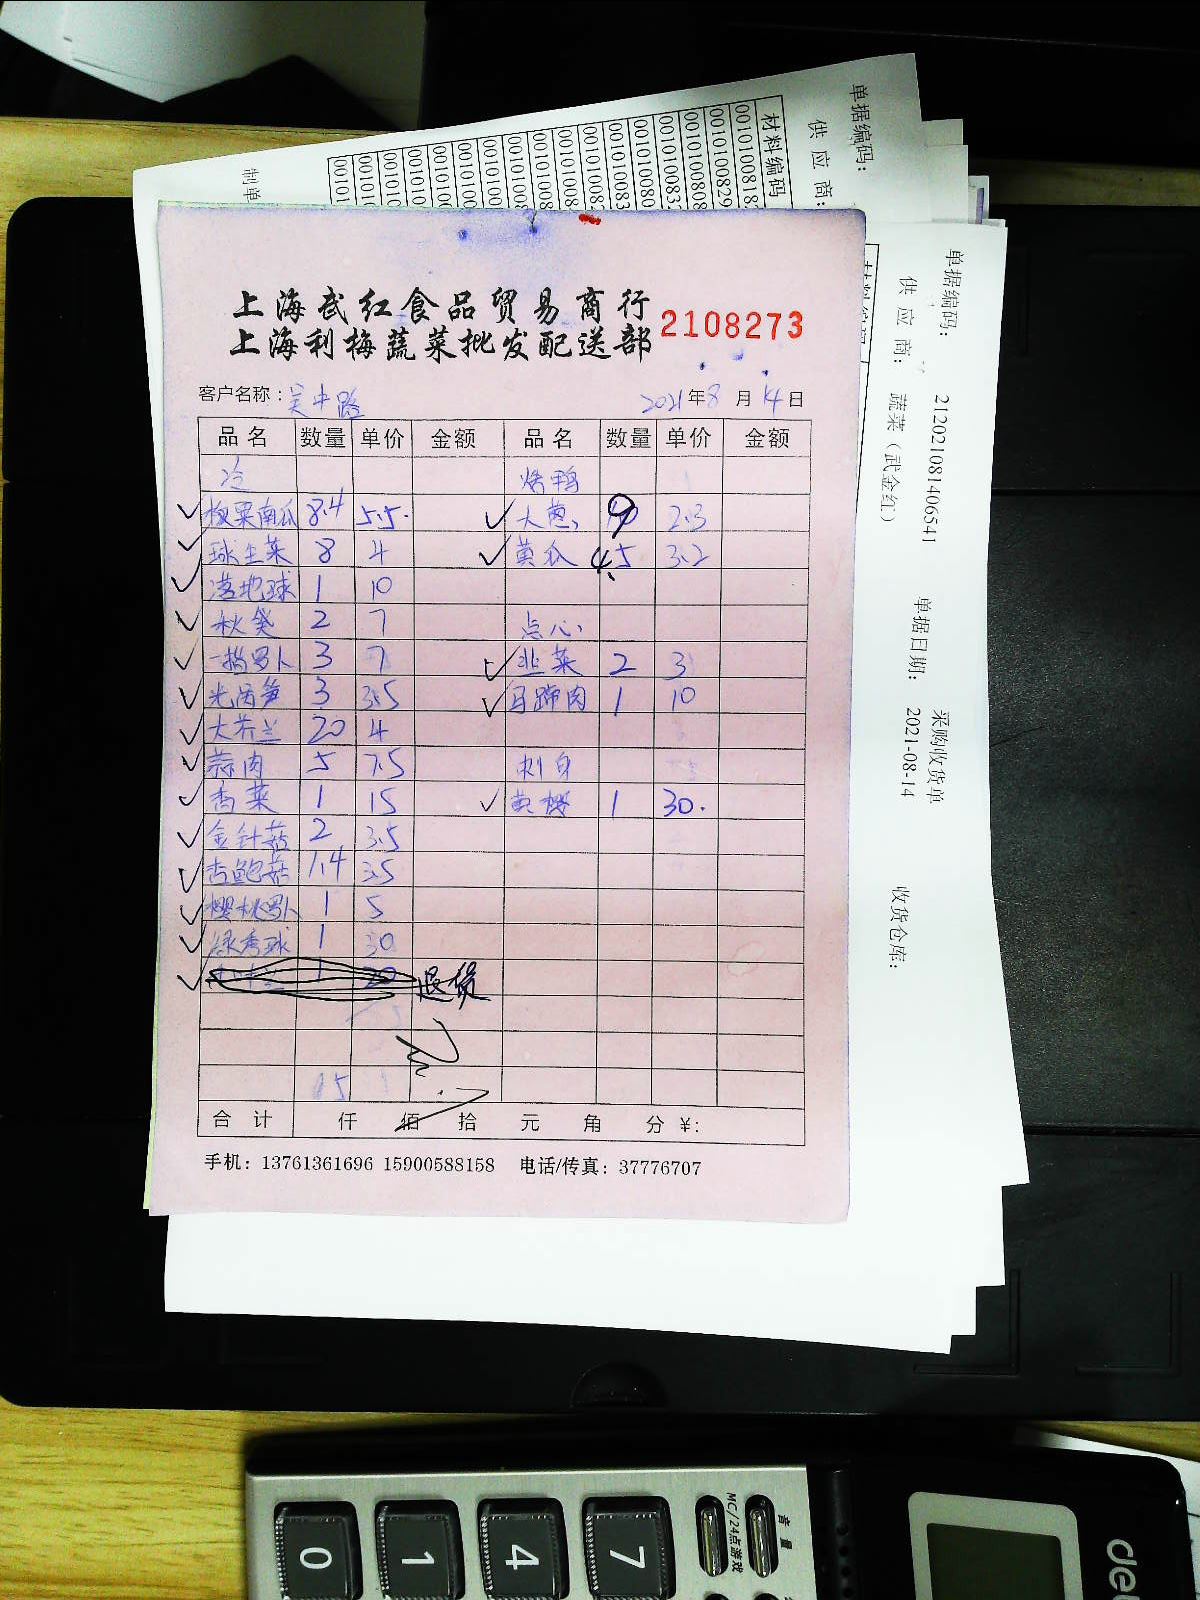 单据编码:
供 应 商:
材料编码
制单
单据编码: 21202108140654​1
供 应 商: 蔬菜（武金红）
单据日期: 2021-08-14
采购收货单
收货仓库:
上海武红食品贸易商行
上海利梅蔬菜批发配送部
2108273
客户名称: 吴中路 2021年8月14日
品名 数量 单价 金额 品名 数量 单价 金额
冷 烤鸭
✓ 板栗南瓜 8.4 5.5 ✓ 大葱 9 2.3
✓ 球生菜 8 4 ✓ 黄瓜 4.5 3.2
✓ 落地球 1 10
✓ 秋葵 2 7 点心
✓ 萝卜 3 7 ✓ 韭菜 2 3
✓ 光莴笋 3 3.5 ✓ 马蹄肉 1 10
✓ 大芥兰 20 4
✓ 蒜肉 5 7.5 刺身
✓ 香菜 1 15 ✓ 黄柠 1 30.
✓ 金针菇 2 3.5
✓ 杏鲍菇 1.4 3.5
✓ 樱桃萝卜 1 5
✓ 绿秀球 1 30
✓ 1 20 退货
合计 仟 佰 拾 元 角 分 ¥:
手机: 13761361696 15900588158 电话/传真: 37776707
音量
MC/24点游戏
0 1 4 7
del